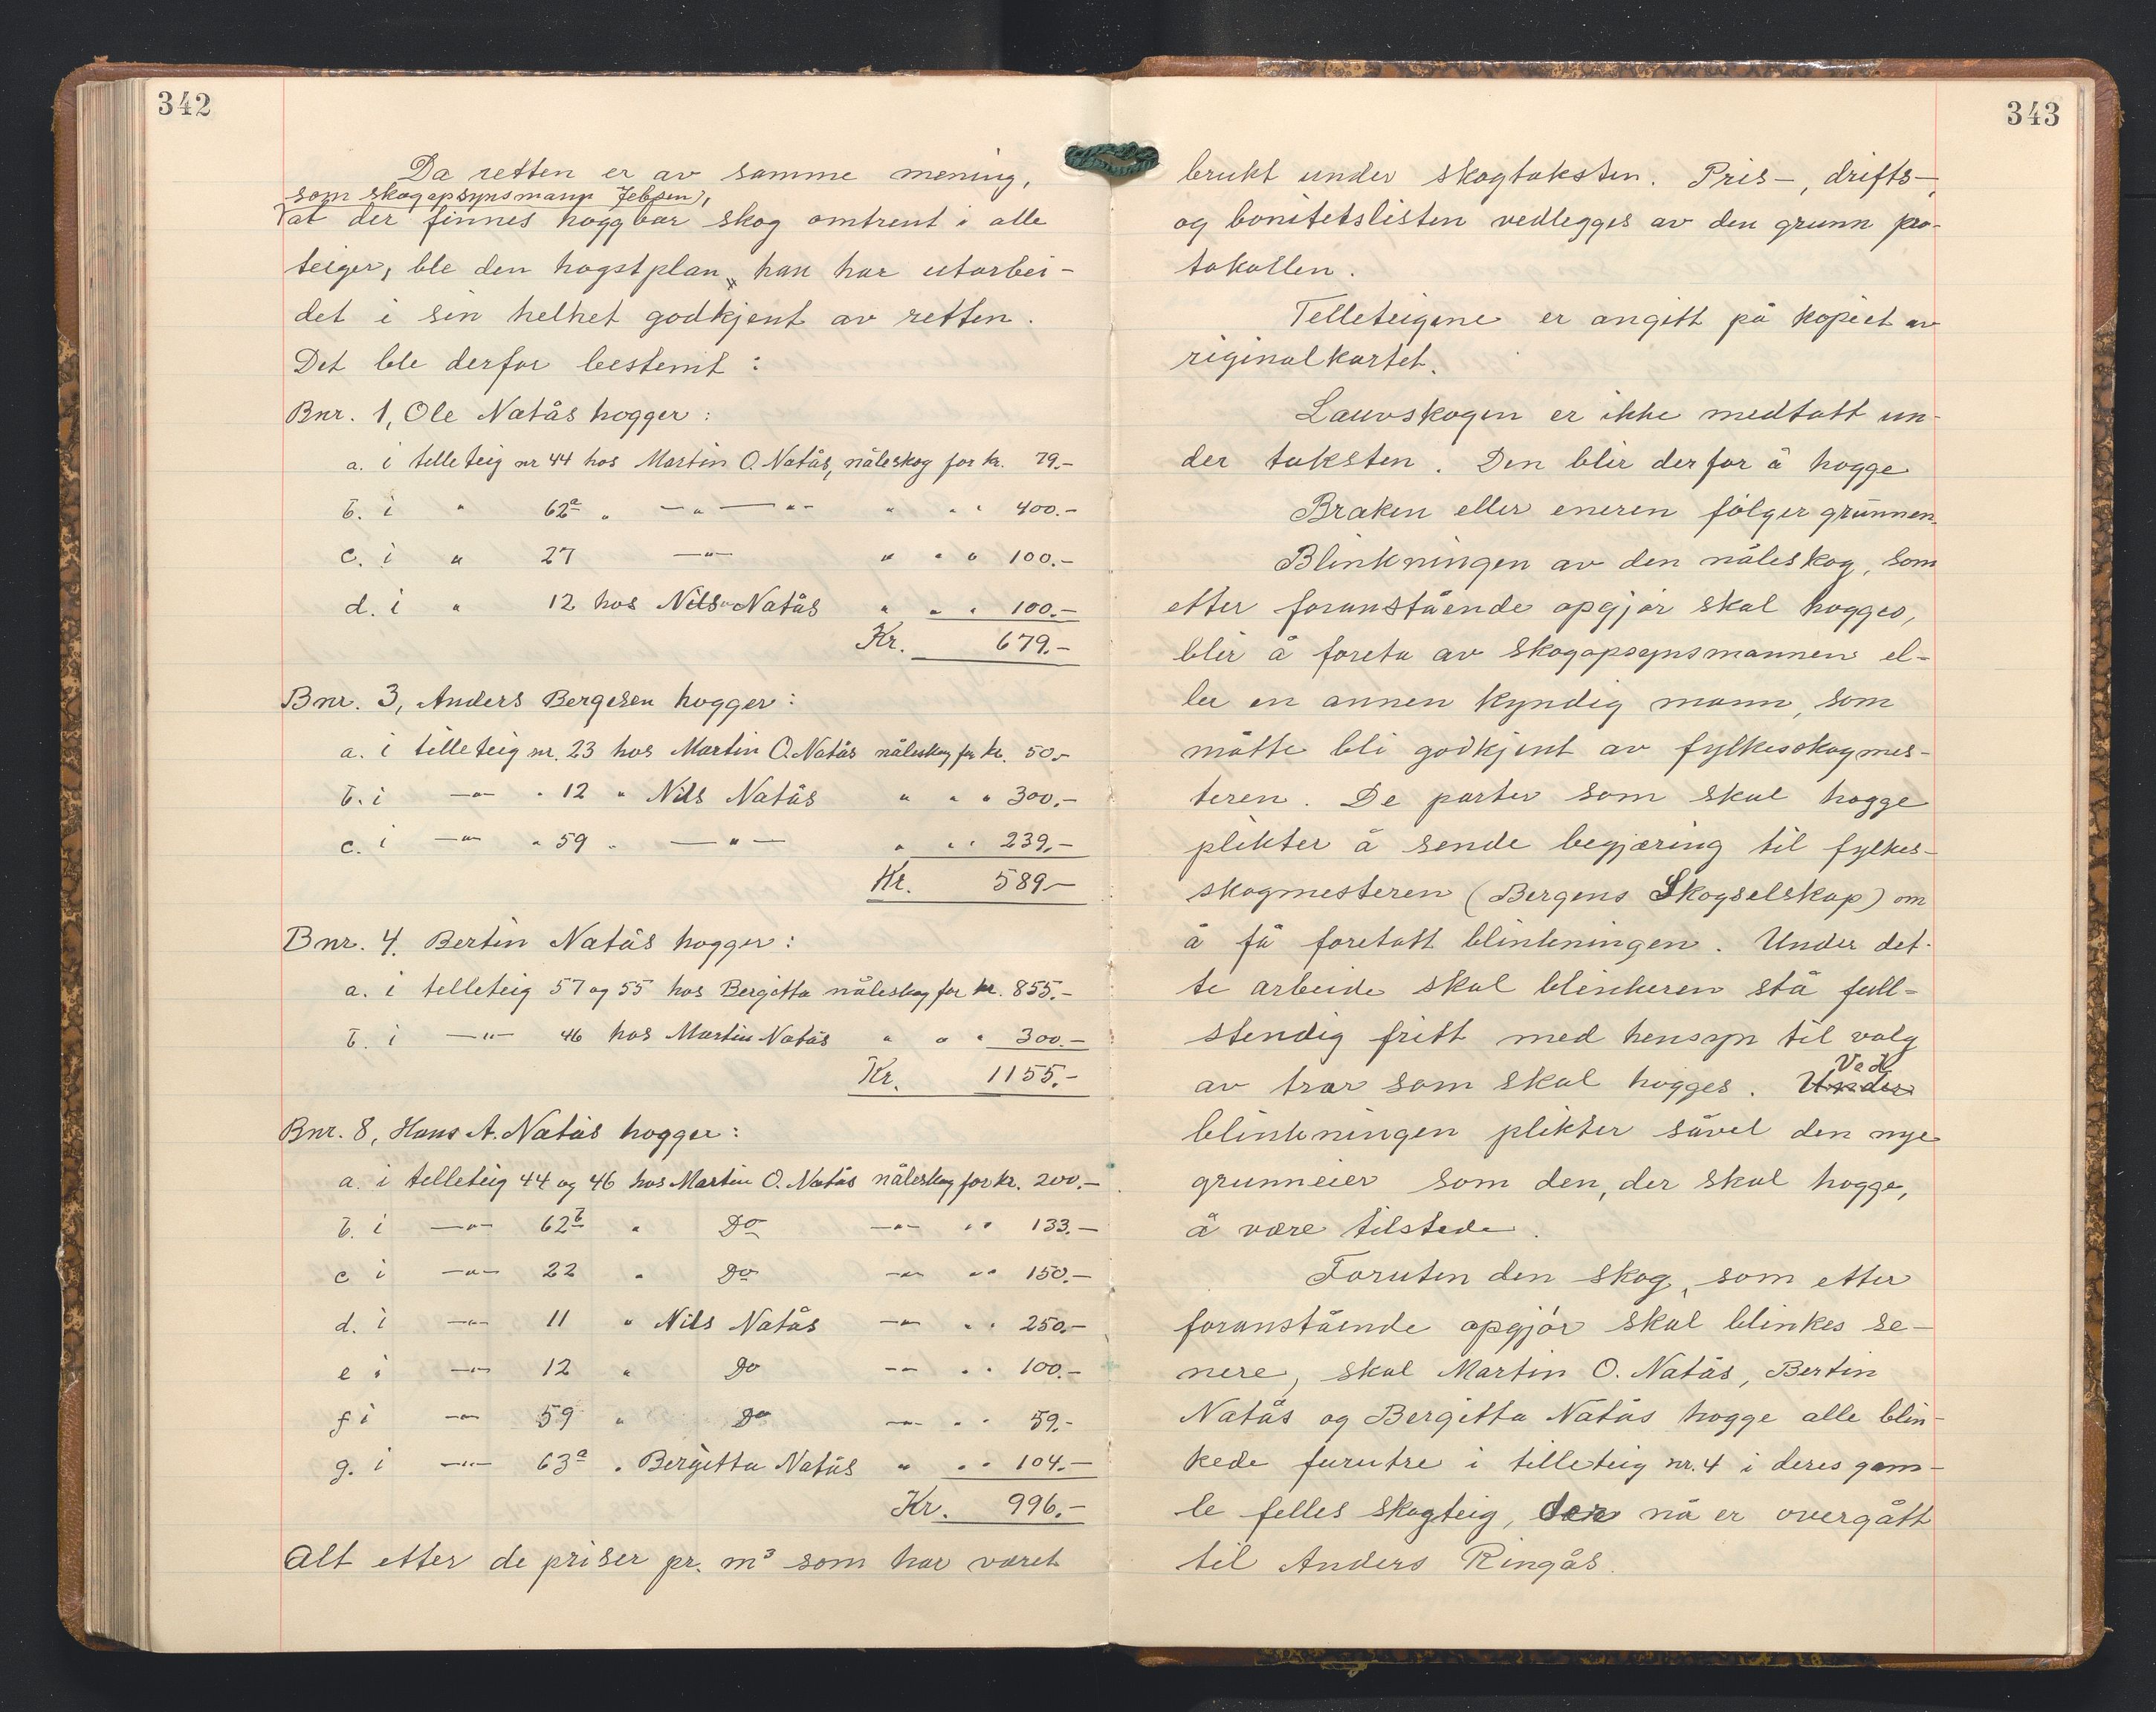 342
Da retten er av samme mening,
som skogopsynsmann Jebsen,
at der finnes hoggbar skog omtrent i alle
teiger, ble den hogstplan, han har utarbei-
det i sin helhet godkjent av retten.
Det ble derfor bestemt:
Bnr. 1, Ole Natås hogger:
a. i telleteig nr 44 hos Martin O. Natås, nåleskog for kr. 79.-
b. i " 62a " -"- -"- " " " 400.-
c. i " 27 -"- " " " 100.-
d. i " 12 hos Nils Natås " " " 100.-
Kr. 679.-
Bnr. 3, Anders Bergesen hogger:
a. i telleteig nr. 23 hos Martin O. Natås nåleskog for kr. 50.-
b. i -"- " 12 " Nils Natås " " " 300.-
c. i -"- " 59 " -"- " " " 239.-
Kr. 589.-
Bnr. 4. Bertin Natås hogger:
a. i telleteig 57 og 55 hos Bergitta nåleskog for kr. 855.-
b. i -"- 46 hos Martin Natås " " " 300.-
Kr. 1155.-
Bnr. 8, Hans A. Natås hogger:
a. i telleteig 44 og 46 hos Martin O. Natås nåleskog for kr. 200.-
b. i -"- 62b " Do -"- " " 133.-
c i -"- 22 " Do -"- " " 150.-
d. i -"- 11 " Nils Natås -"- " " 250.-
e i -"- 12 " Do -"- " " 100.-
f i -"- 59 " Do -"- " " 59.-
g. i -"- 63a " Bergitta Natås " " " 104.-
Kr. 996.-
Alt etter de priser pr. m³ som har været
343
brukt under skogtaksten. Pris-, drifts-,
og bonitetslisten vedlegges av den grunn pro-
tokollen.
Telleteigene er angitt på kopiet av
riginalkartet.
Lauvskogen er ikke medtatt un-
der taksten. Den blir derfor å hogge
Braken eller eneren følger grunnen.
Blinkningen av den nåleskog, som
etter foranstående opgjør skal hogges,
blir å foreta av skogopsynsmannen el-
ler en annen kyndig mann, som
måtte bli godkjent av fylkesskogmes-
teren. De parter som skal hogge
plikter å sende begjæring til fylkes-
skogmesteren (Bergens Skogselskap) om
å få foretatt blinkningen. Under det-
te arbeide skal blinkeren stå full-
stendig fritt med hensyn til valg
av trær som skal hogges. Under Ved
blinkningen plikter såvel den nye
grunneier som den, der skal hogge,
å være tilstede.
Foruten den skog, som etter
foranstående opgjør skal blinkes se-
nere, skal Martin O. Natås, Bertin
Natås og Bergitta Natås hogge alle blin-
kede furutre i telleteig nr. 4 i deres gam-
le felles skogteig, der nå er overgått
til Anders Ringås.